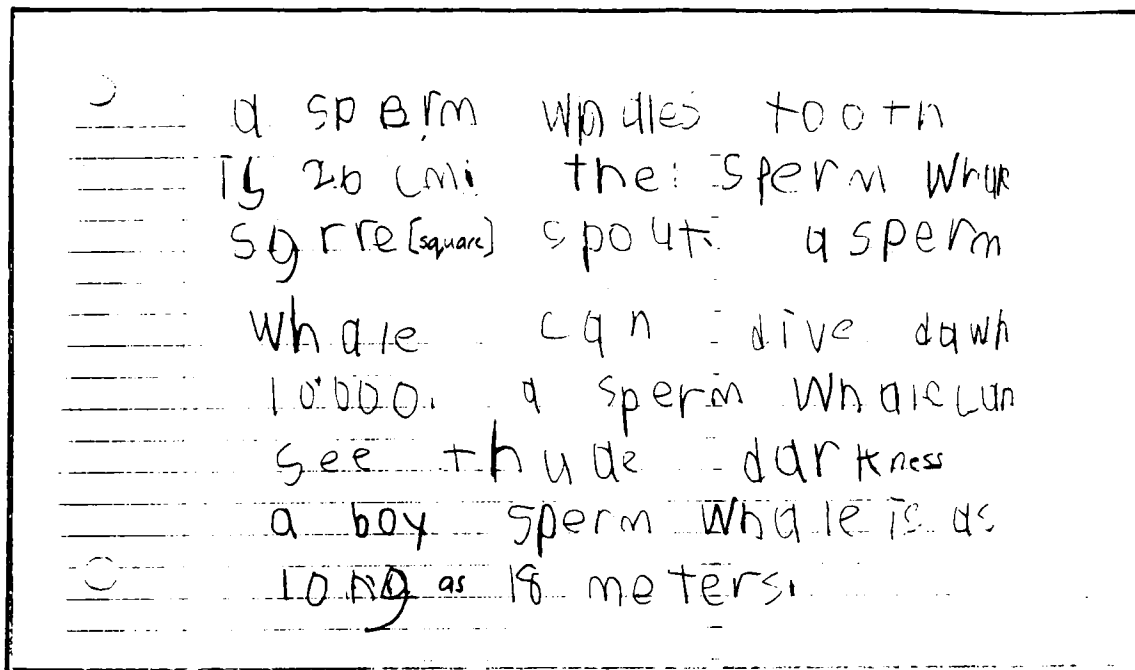 a sperm whales tooth
is 20 cm. the sperm whale
sqrre [square] spout. a sperm
whale can dive dawn
10,000. a sperm whale can
see thude darkness
a boy sperm whale is as
long as 18 meters.